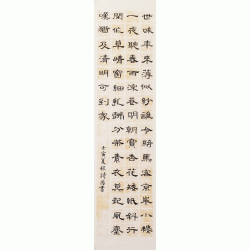 世味年来薄似紗誰令騎馬客京華小樓
一夜聽春雨深巷明朝賣杏花矮紙斜行
閒作草晴窗細乳戲分茶素衣莫起風塵
嘆猶及清明可到家
壬寅夏書